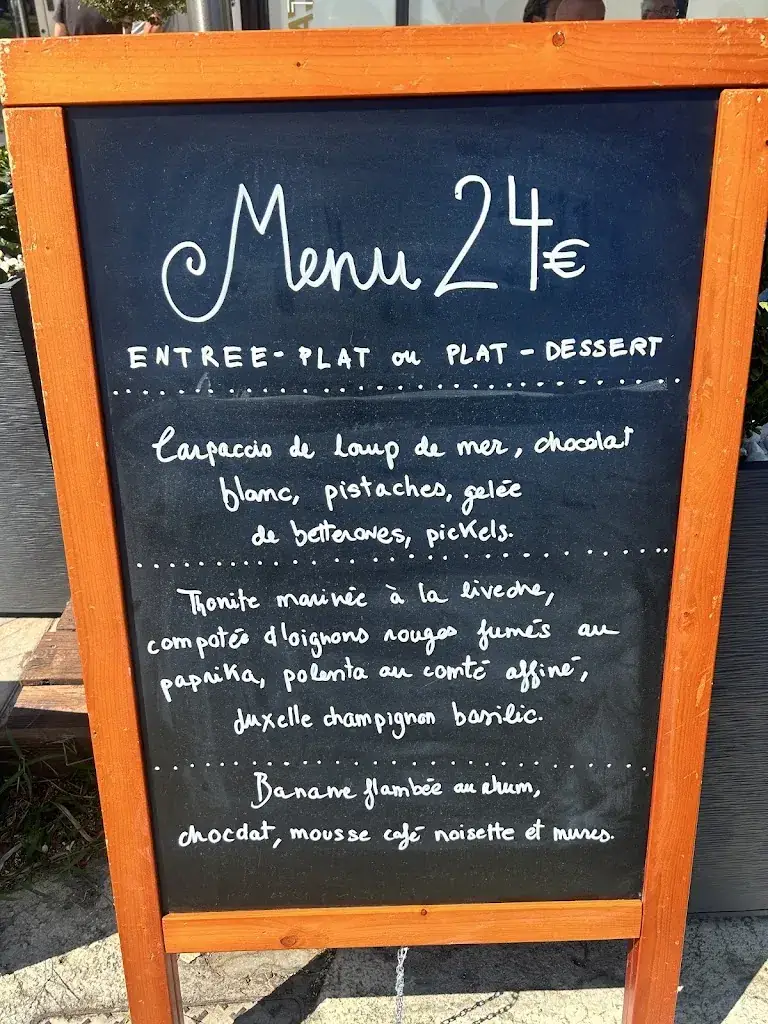 Menu 24€
ENTREE - PLAT ou PLAT - DESSERT
Carpaccio de Loup de mer, chocolat
blanc, pistaches, gelée
de betteraves, pickels.
Thonite marinée à la liveche,
compotée d'oignons rouges fumés au
paprika, polenta au comté affiné,
duxelle champignon basilic.
Banane flambée au rhum,
chocolat, mousse café noisette et mures.